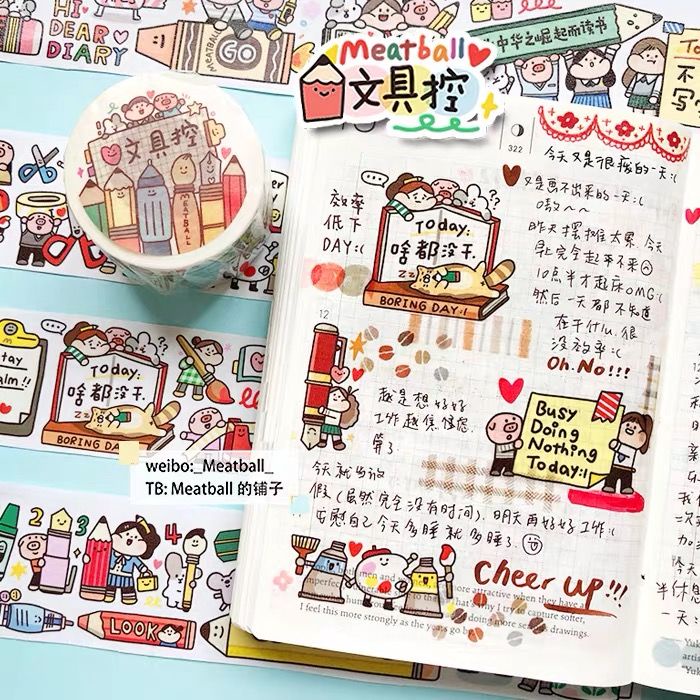 HI
DEAR
DIARY
GO
Meatball
文具控
中华之崛起而读书
不
写
文具控
MEATBALL
322
今天又是很孬的一天:(
又是画不出来的一天:(
嗷~~
昨天摆摊太累,今天
早上完全起不来
10点半才起床OMG:(
然后一天都不知道
在干什么,很
没效率:(
Oh.No!!!
效率
低下
DAY:(
Today:
啥都没干.
zz
BORING DAY:(
12
越是想好好
工作越焦虑
算了.
Busy
Doing
Nothing
Today:(
今天就当放
假(虽然完全没有时间).明天再好好工作:(
安慰自己今天多睡就多睡了
Cheer up!!!
more attractive when they
that's why I try to capture softer,
I feel this more strongly as the years go by.
doing more
drawings.
stay
alm!!
Today:
啥都没干.
zz
BORING DAY:(
weibo:_Meatball_
TB: Meatball 的铺子
1
2
3
4
LOOK
半休息
一天:
Yuk
artis
"Yuk